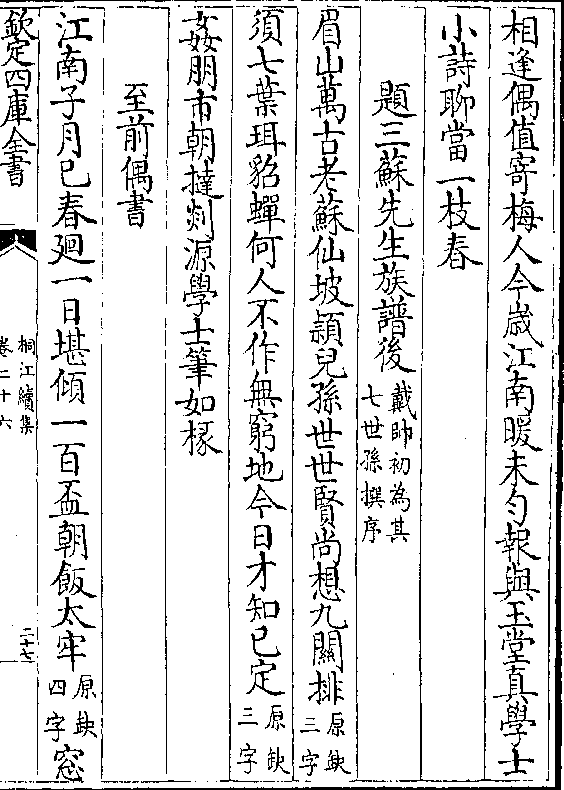 相逢偶值寄梅人今歲江南暖未匀報與玉堂真學士
小詩聊當一枝春
題三蘇先生族譜後 戴帥初為其七世孫撰序
眉山萬古老蘇仙坡穎兒孫世世賢尚想九關排 原缺三字
須七葉珥貂蟬何人不作無窮地今日才知已定 原缺三字
姦朋市朝撻剡源學士筆如椽
至前偶書
江南子月已春廻一日堪傾一百盃朝飯太牢 原缺四字 窓
欽定四庫全書
桐江續集
卷二十六
二十七